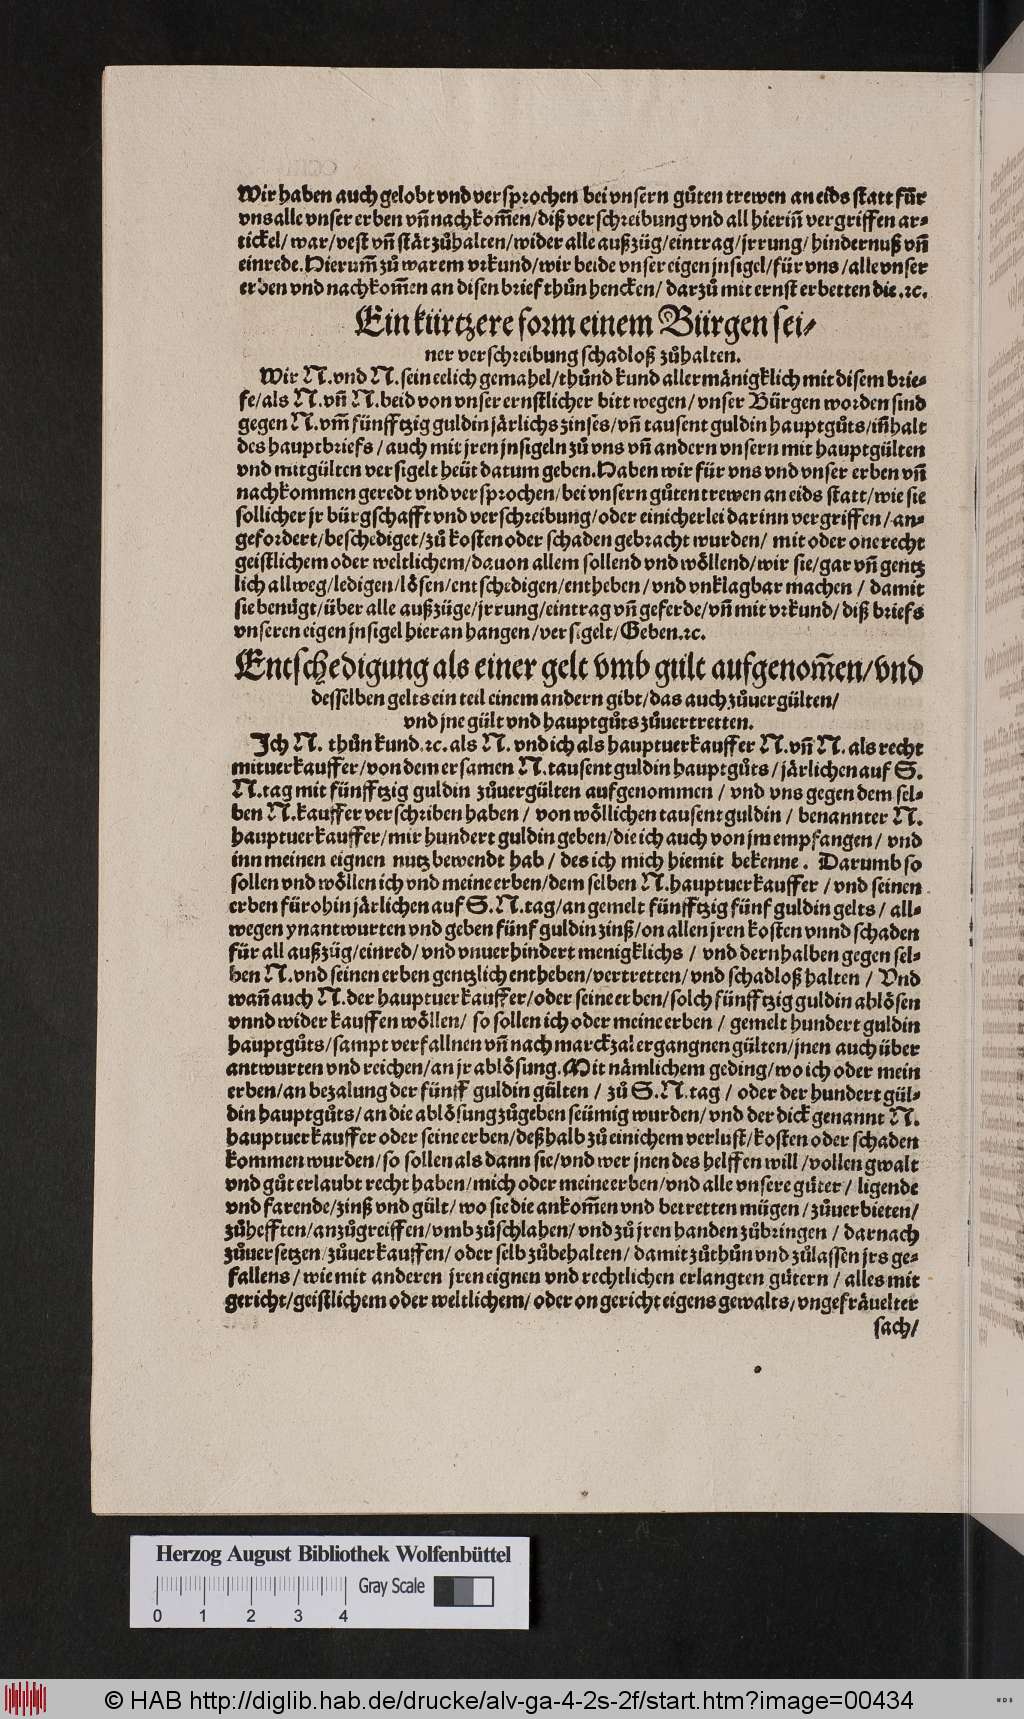 Wir haben auch gelobt vnd versprochen bei vnsern gůten trewen an eids statt für
vns alle vnser erben vñ nachkom̃en/ diß verschreibung vnd all hierin̄ vergriffen ar-
tickel/ war/ vest vñ stät zůhalten/ wider alle außzüg/ eintrag/ jrrung/ hindernuß vñ
einrede. Hierum̃ zů warem vrkund/ wir beide vnser eigen jnsigel/ für vns/ alle vnser
erben vnd nachkom̃en an disen brief thůn hencken/ darzů mit ernst erbetten die.ꝛc.
Ein kürtzere form einem Bürgen sei-
ner verschreibung schadloß zůhalten.
Wir N. vnd N. sein eelich gemahel/ thůnd kund allermänigklich mit disem brie-
fe/ als N. vñ N. beid von vnser ernstlicher bitt wegen/ vnser Bürgen worden sind
gegen N. vm̃ fünfftzig guldin järlichs zinses/ vñ tausent guldin hauptgůts/ in̄halt
des hauptbriefs/ auch mit jren jnsigeln zů vns vñ andern vnsern mit hauptgülten
vnd mitgülten versigelt heüt datum geben. Haben wir für vns vnd vnser erben vñ
nachkommen geredt vnd versprochen/ bei vnsern gůten trewen an eids statt/ wie sie
sollicher jr bürgschafft vnd verschreibung/ oder einicherlei darinn vergriffen/ an-
gefordert/ beschediget/ zů kosten oder schaden gebracht wurden/ mit oder one recht
geistlichem oder weltlichem/ dauon allem sollend vnd wöllend/ wir sie/ gar vñ gentz
lich allweg/ ledigen/ lösen/ entschedigen/ entheben/ vnd vnklagbar machen/ damit
sie benügt/ über alle außzüge/ jrrung/ eintrag vñ geferde/ vñ mit vrkund/ diß briefs
vnseren eigen jnsigel hieran hangen/ versigelt/ Geben.ꝛc.
Entschedigung als einer gelt vmb gült aufgenom̃en/ vnd
desselben gelts ein teil einem andern gibt/ das auch zůuergülten/
vnd jne gült vnd hauptgůts zůuertretten.
Ich N. thůn kund.ꝛc. als N. vnd ich als hauptuerkauffer N. vñ N. als recht
mituerkauffer/ von dem ersamen N. tausent guldin hauptgůts/ järlichen auf S.
N. tag mit fünfftzig guldin zůuergülten aufgenommen/ vnd vns gegen dem sel-
ben N. kauffer verschriben haben/ von wöllichen tausent guldin/ benannter N.
hauptuerkauffer/ mir hundert guldin geben/ die ich auch von jm empfangen/ vnd
inn meinen eignen nutz bewendt hab/ des ich mich hiemit bekenne. Darumb so
sollen vnd wöllen ich vnd meine erben/ dem selben N. hauptuerkauffer/ vnd seinen
erben fürohin järlichen auf S. N. tag/ an gemelt fünfftzig fünf guldin gelts/ all-
wegen ynantwurten vnd geben fünf guldin zinß/ on allen jren kosten vnnd schaden
für all außzüg/ einred/ vnd vnuerhindert menigklichs/ vnd dernhalben gegen sel-
ben N. vnd seinen erben gentzlich entheben/ vertretten/ vnd schadloß halten/ Vnd
wan̄ auch N. der hauptuerkauffer/ oder seine erben/ solch fünfftzig guldin ablösen
vnnd widerkauffen wöllen/ so sollen ich oder meine erben/ gemelt hundert guldin
hauptgůts/ sampt verfallnen vñ nach marckzal ergangnen gülten/ jnen auch über
antwurten vnd reichen/ an jr ablösung. Mit nämlichem geding/ wo ich oder mein
erben/ an bezalung der fünff guldin gülten/ zů S. N. tag/ oder der hundert gül-
din hauptgůts/ an die ablösung zůgeben seümig wurden/ vnd der dick genannt N.
hauptuerkauffer oder seine erben/ deßhalb zů einichem verlust/ kosten oder schaden
kommen wurden/ so sollen als dann sie/ vnd wer jnen des helffen will/ vollen gwalt
vnd gůt erlaubt recht haben/ mich oder meine erben/ vnd alle vnsere güter/ ligende
vnd farende/ zinß vnd gült/ wo sie die ankom̃en vnd betretten mügen/ zůuerbieten/
zůhefften/ anzůgreiffen/ vmb zůschlahen/ vnd zů jren handen zůbringen/ darnach
zůuersetzen/ zůuerkauffen/ oder selb zůbehalten/ damit zůthůn vnd zůlassen jrs ge-
fallens/ wie mit anderen jren eignen vnd rechtlichen erlangten gütern/ alles mit
gericht/ geistlichem oder weltlichem/ oder on gericht eigens gewalts/ vngefräuelter
sach/
Herzog August Bibliothek Wolfenbüttel
Gray Scale
0 1 2 3 4
© HAB http://diglib.hab.de/drucke/alv-ga-4-2s-2f/start.htm?image=00434